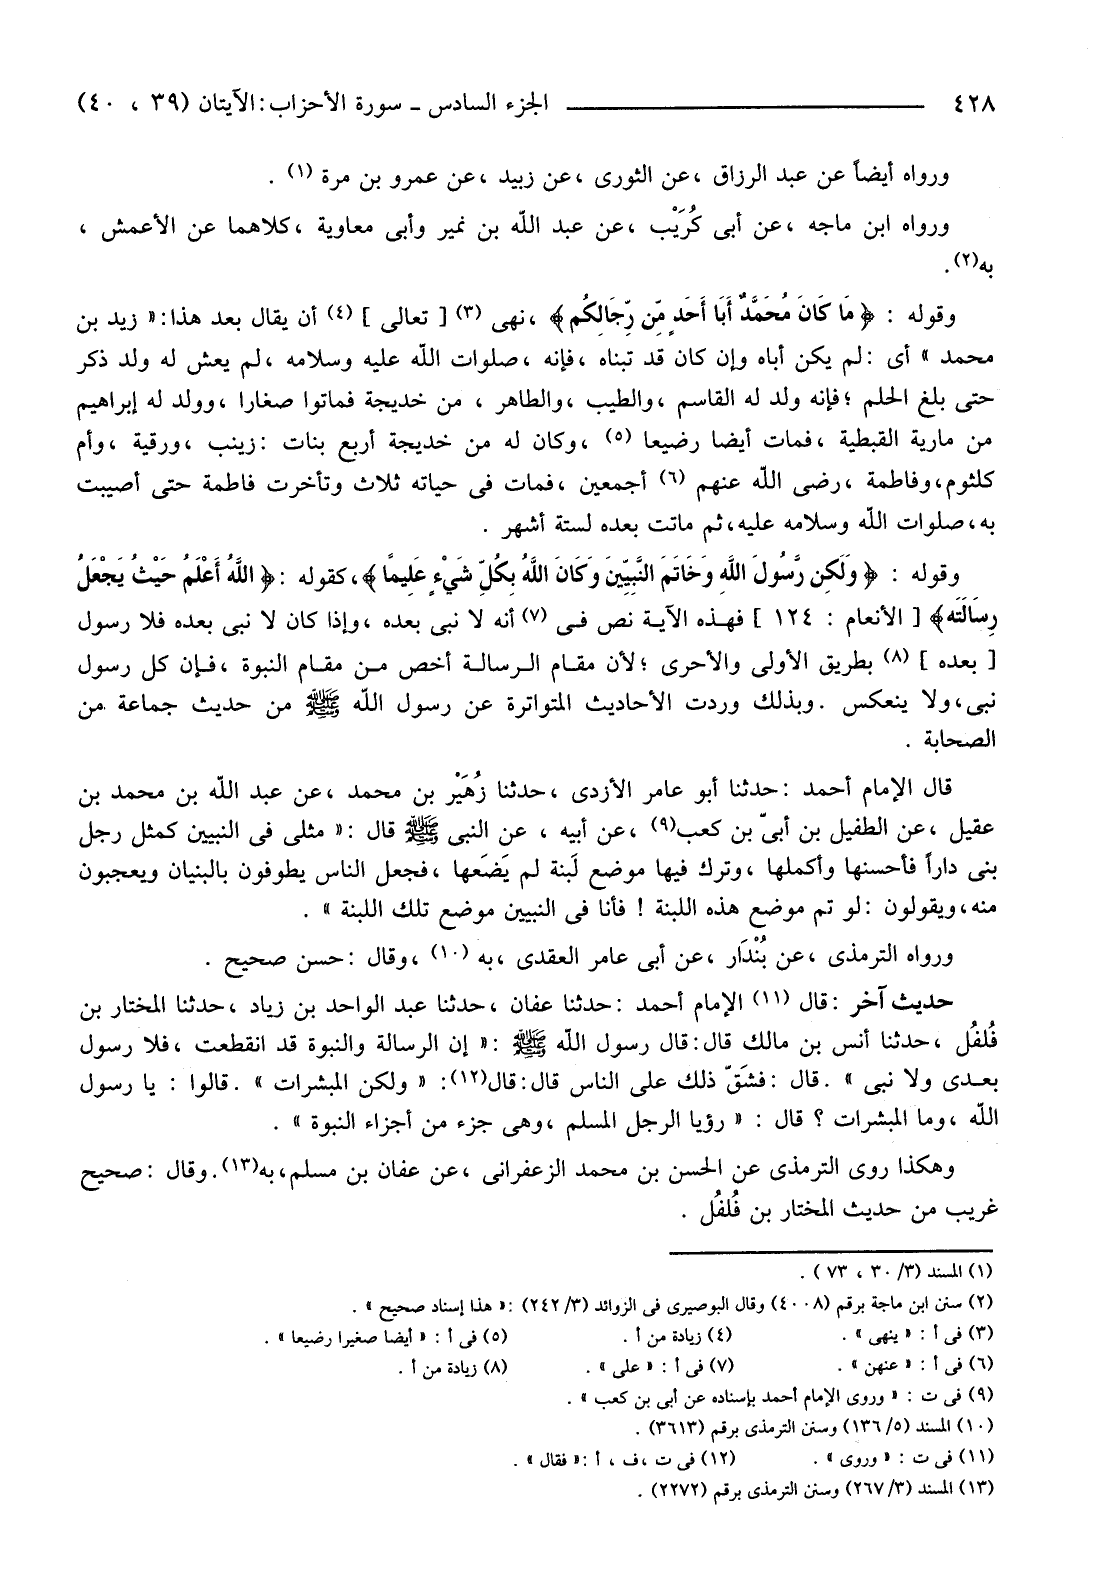 ٤٢٨ ــــــــــــــــ الجزء السادس ـ سورة الأحزاب : الآيتان (٣٩ ، ٤٠)
ورواه أيضاً عن عبد الرزاق ، عن الثورى ، عن زبيد ، عن عمرو بن مرة (١) .
ورواه ابن ماجه ، عن أبى كُرَيْب ، عن عبد الله بن نمير وأبى معاوية ، كلاهما عن الأعمش ،
به(٢) .
وقوله : ﴿ مَا كَانَ مُحَمَّدٌ أَبَا أَحَدٍ مِّن رِّجَالِكُم ﴾ ، نهى (٣) [ تعالى ] (٤) أن يقال بعد هذا : « زيد بن
محمد » أى : لم يكن أباه وإن كان قد تبناه ، فإنه ، صلوات الله عليه وسلامه ، لم يعش له ولد ذكر
حتى بلغ الحلم ؛ فإنه ولد له القاسم ، والطيب ، والطاهر ، من خديجة فماتوا صغارا ، وولد له إبراهيم
من مارية القبطية ، فمات أيضا رضيعا (٥) ، وكان له من خديجة أربع بنات : زينب ، ورقية ، وأم
كلثوم ، وفاطمة ، رضى الله عنهم (٦) أجمعين ، فمات فى حياته ثلاث وتأخرت فاطمة حتى أصيبت
به ، صلوات الله وسلامه عليه ، ثم ماتت بعده لستة أشهر .
وقوله : ﴿ وَلَكِن رَّسُولَ اللَّهِ وَخَاتَمَ النَّبِيِّينَ وَكَانَ اللَّهُ بِكُلِّ شَيْءٍ عَلِيمًا ﴾ ، كقوله : ﴿ اللَّهُ أَعْلَمُ حَيْثُ يَجْعَلُ
رِسَالَتَه ﴾ [ الأنعام : ١٢٤ ] فهذه الآية نص فى (٧) أنه لا نبى بعده ، وإذا كان لا نبى بعده فلا رسول
[ بعده ] (٨) بطريق الأولى والأحرى ؛ لأن مقام الرسالة أخص من مقام النبوة ، فإن كل رسول
نبى ، ولا ينعكس . وبذلك وردت الأحاديث المتواترة عن رسول الله ﷺ من حديث جماعة من
الصحابة .
قال الإمام أحمد : حدثنا أبو عامر الأزدى ، حدثنا زُهَيْر بن محمد ، عن عبد الله بن محمد بن
عقيل ، عن الطفيل بن أبىّ بن كعب(٩) ، عن أبيه ، عن النبى ﷺ قال : « مثلى فى النبيين كمثل رجل
بنى داراً فأحسنها وأكملها ، وترك فيها موضع لَبنة لم يَضَعها ، فجعل الناس يطوفون بالبنيان ويعجبون
منه ، ويقولون : لو تم موضع هذه اللبنة ! فأنا فى النبيين موضع تلك اللبنة » .
ورواه الترمذى ، عن بُنْدَار ، عن أبى عامر العقدى ، به (١٠) ، وقال : حسن صحيح .
حديث آخر : قال (١١) الإمام أحمد : حدثنا عفان ، حدثنا عبد الواحد بن زياد ، حدثنا المختار بن
فُلفُل ، حدثنا أنس بن مالك قال : قال رسول الله ﷺ : « إن الرسالة والنبوة قد انقطعت ، فلا رسول
بعدى ولا نبى » . قال : فشَقّ ذلك على الناس قال : قال(١٢) : « ولكن المبشرات » . قالوا : يا رسول
الله ، وما المبشرات ؟ قال : « رؤيا الرجل المسلم ، وهى جزء من أجزاء النبوة » .
وهكذا روى الترمذى عن الحسن بن محمد الزعفرانى ، عن عفان بن مسلم ، به(١٣) . وقال : صحيح
غريب من حديث المختار بن فُلفُل .
(١) المسند (٣/ ٣٠ ، ٧٣) .
(٢) سنن ابن ماجة برقم (٤٠٠٨) وقال البوصيرى فى الزوائد (٣/ ٢٤٢) : « هذا إسناد صحيح » .
(٣) فى أ : « ينهى » . (٤) زيادة من أ . (٥) فى أ : « أيضا صغيرا رضيعا » .
(٦) فى أ : « عنهن » . (٧) فى أ : « على » . (٨) زيادة من أ .
(٩) فى ت : « وروى الإمام أحمد بإسناده عن أبى بن كعب » .
(١٠) المسند (٥/ ١٣٦) وسنن الترمذى برقم (٣٦١٣) .
(١١) فى ت : « وروى » . (١٢) فى ت ، ف ، أ : « فقال » .
(١٣) المسند (٣/ ٢٦٧) وسنن الترمذى برقم (٢٢٧٢) .